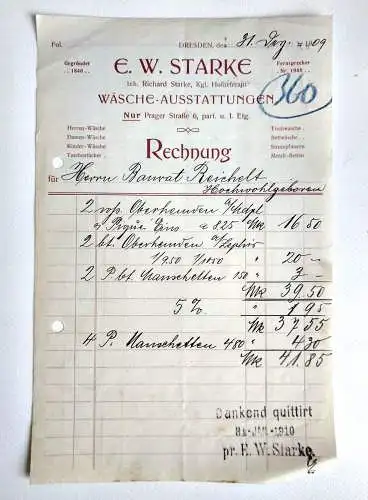 Fol.
DRESDEN, den 31. Dez. 1909
Gegründet
.. 1840 ..
Fernsprecher
.. Nr 1948 ..
E. W. STARKE
Inh. Richard Starke, Kgl. Hoflieferant
WÄSCHE-AUSSTATTUNGEN
360
Nur Prager Straße 6, part. u. I. Etg.
Herren-Wäsche
Damen-Wäsche
Kinder-Wäsche
Taschentücher
Tischwäsche
Bettwäsche
Steppdecken
Metall-Betten
Rechnung
für Herrn Baurat Reichelt
Hochwohlgeboren
2 Oberhemden
Piqué Eins. a 825 Mk 16 50
2 bt. Oberhemden a/Zephir
1/950 1/1050 " 20 —
2 P bt. Manschetten 150 " 3 —
Mk 39.50
5% " 1 95
Mk 37 55
4 P. Manschetten 480 " 4 30
Mk 41.85
Dankend quittirt
31 JAN 1910
pr. E. W. Starke